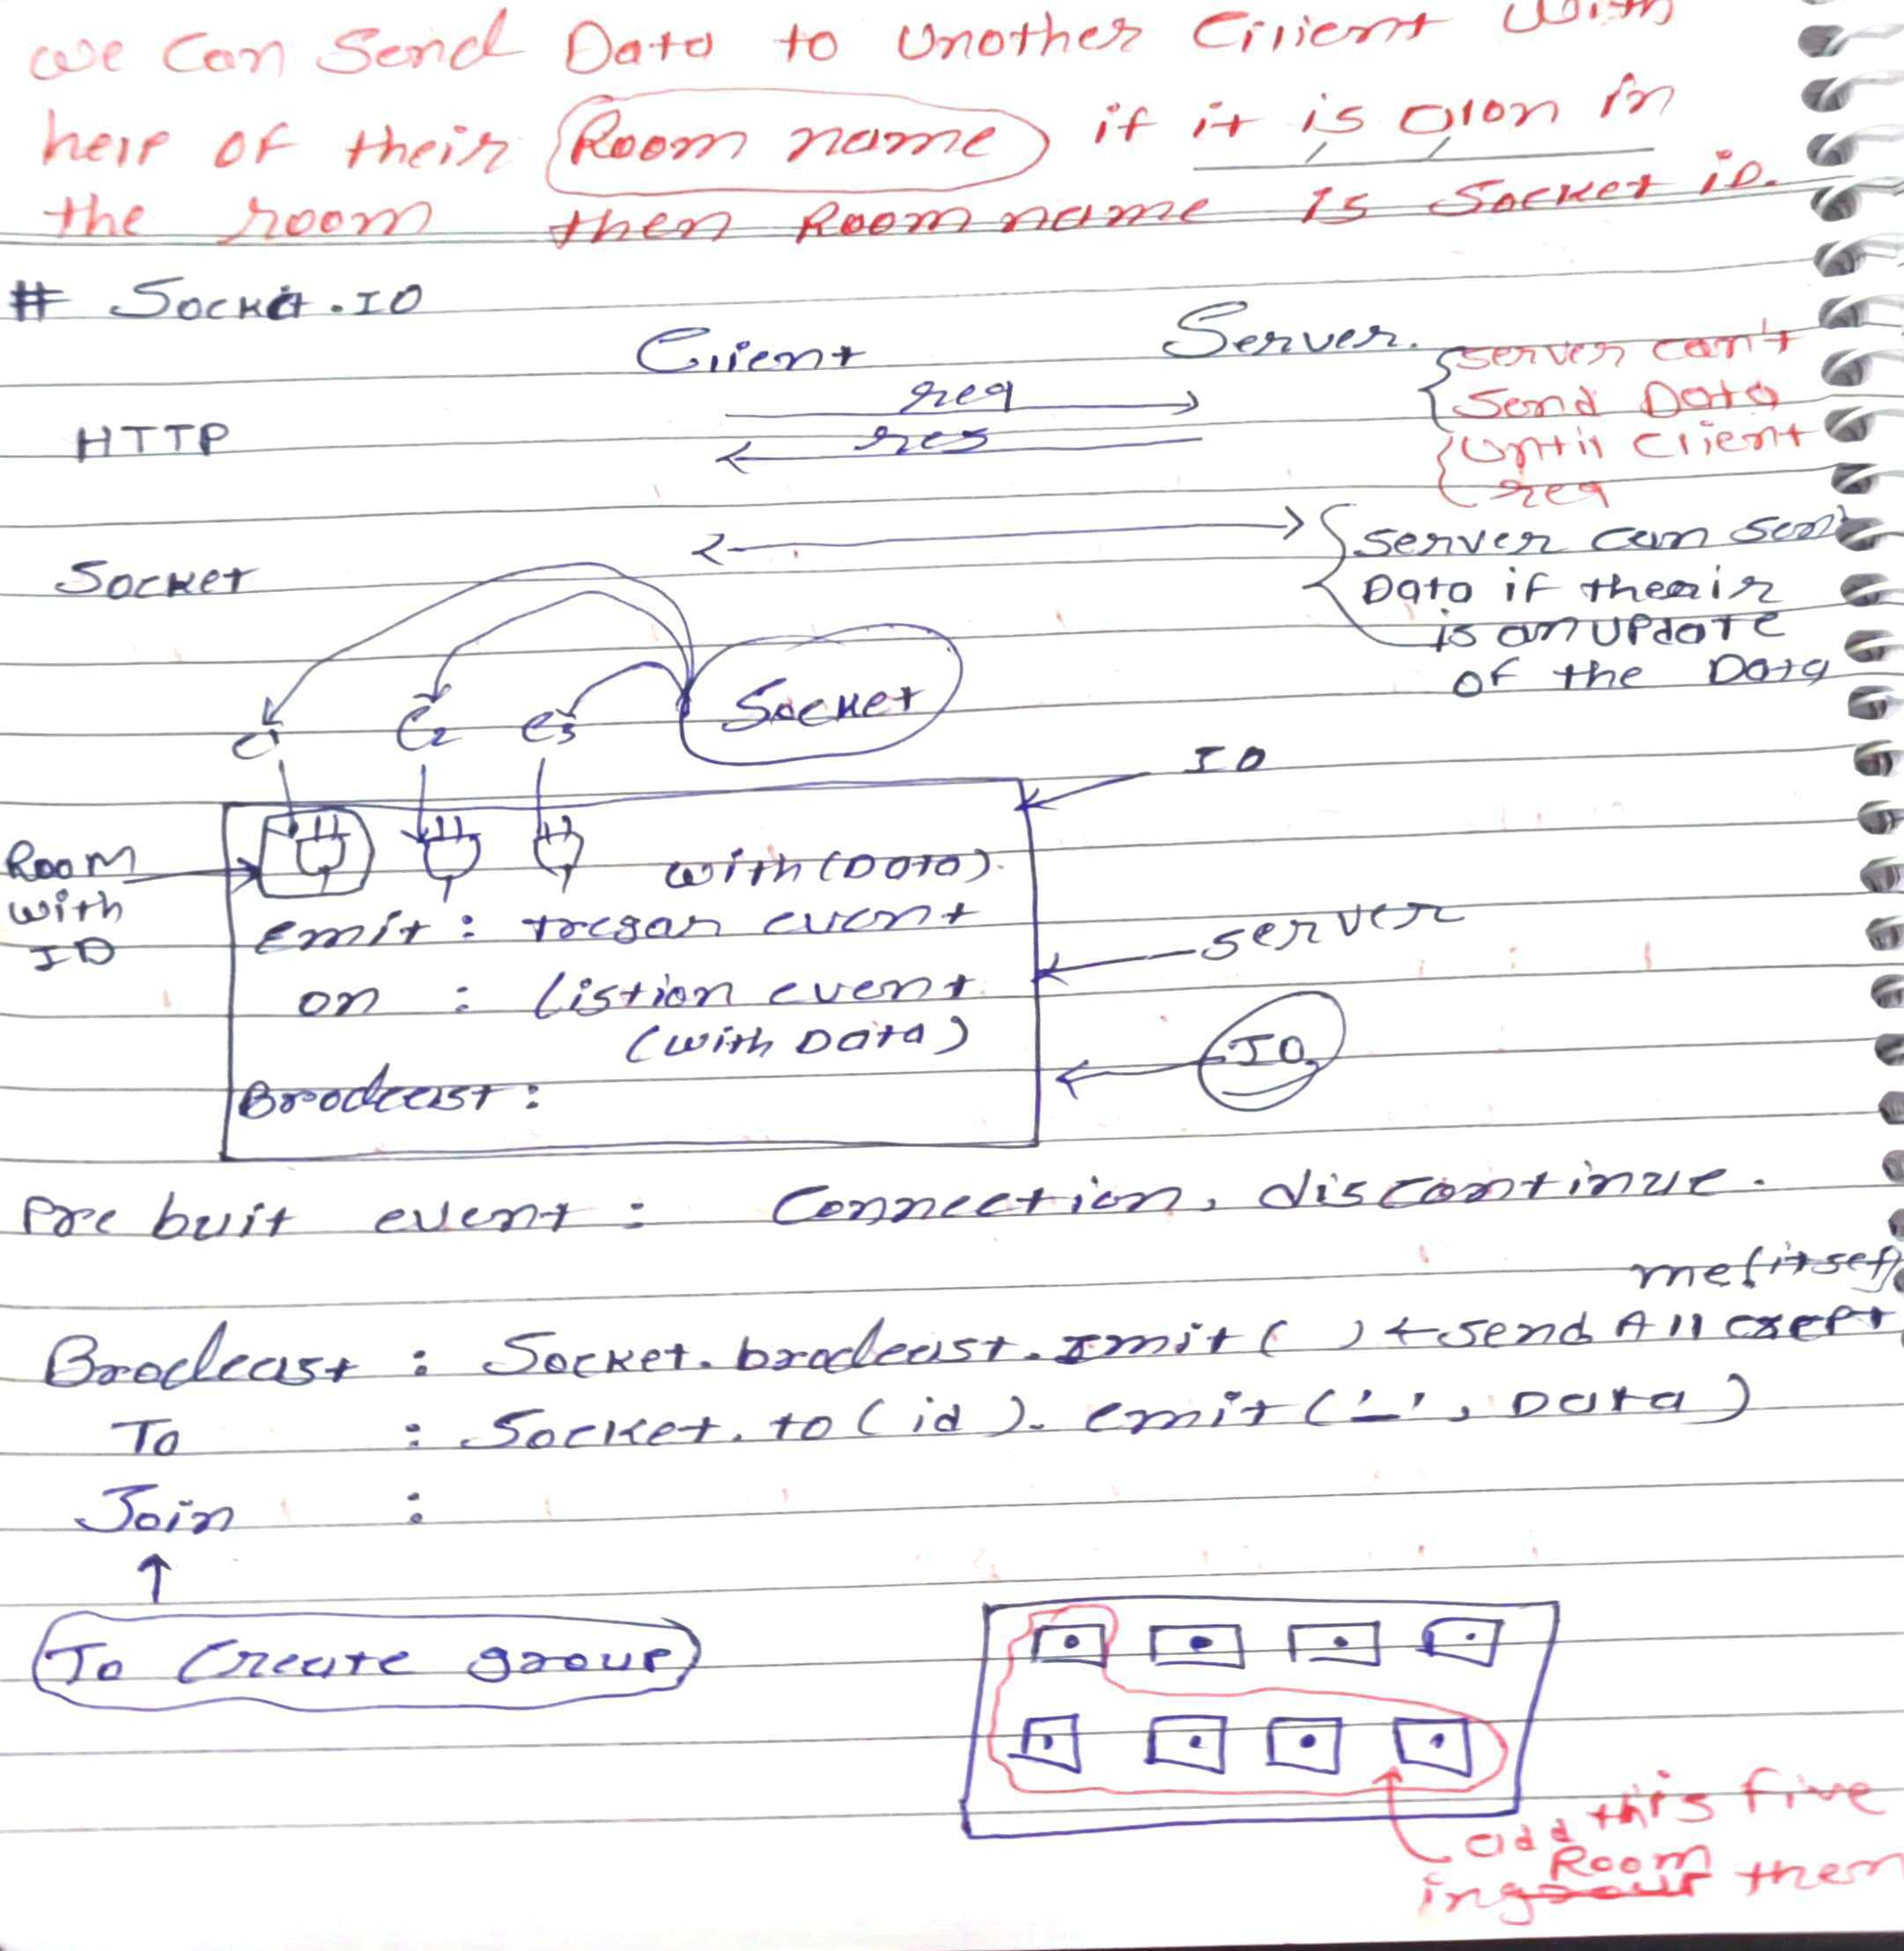 we Can Send Data to Unother Client with
help of their Room name if it is alon in
the room then Room name Is Socket iD.
# Socket.IO
Client Server.
HTTP req
res
{ server can't
Send Data
until client
req
Socket
{ server can send
Data if theair
is an update
of the Data
Socket
C1 C2 C3
IO
Room
with
ID
with (Data).
emit : tregar event
server
on : listion event
(with Data)
IO
Brodcast :
Pre buit event : Connection, discontinue.
me(itself
Brodcast : Socket.brodcast.Emit( ) ← send All exept
To : Socket.to(id).emit('_', Data)
Join :
↑
To Create group
add this five
Room
in group then